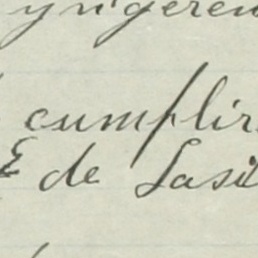 yngeren
cumplir
de Lasi